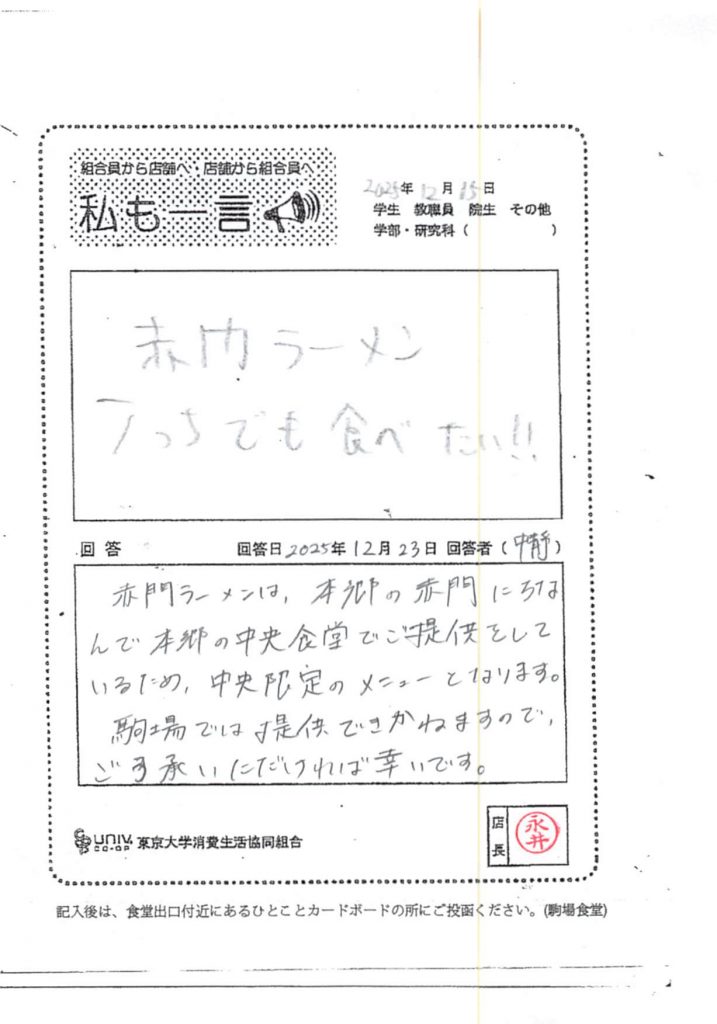 組合員から店舗へ・店舗から組合員へ
私も一言
2025年12月15日
学生 教職員 院生 その他
学部・研究科( )
赤門ラーメン
こっちでも食べたい!!
回答 回答日2025年12月23日 回答者(中静)
赤門ラーメンは、本郷の赤門にちな
んで本郷の中央食堂でご提供をして
いるため、中央限定のメニューとなります。
駒場では提供できかねますので、
ご了承いただければ幸いです。
UNIV. CO-OP 東京大学消費生活協同組合
店長
永井
記入後は、食堂出口付近にあるひとことカードボードの所にご投函ください。(駒場食堂)